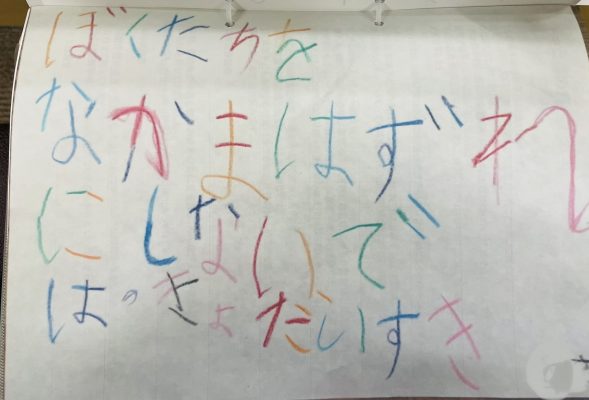 ぼくたちを
なかまはずれ
にしないで
はっきょだいすき